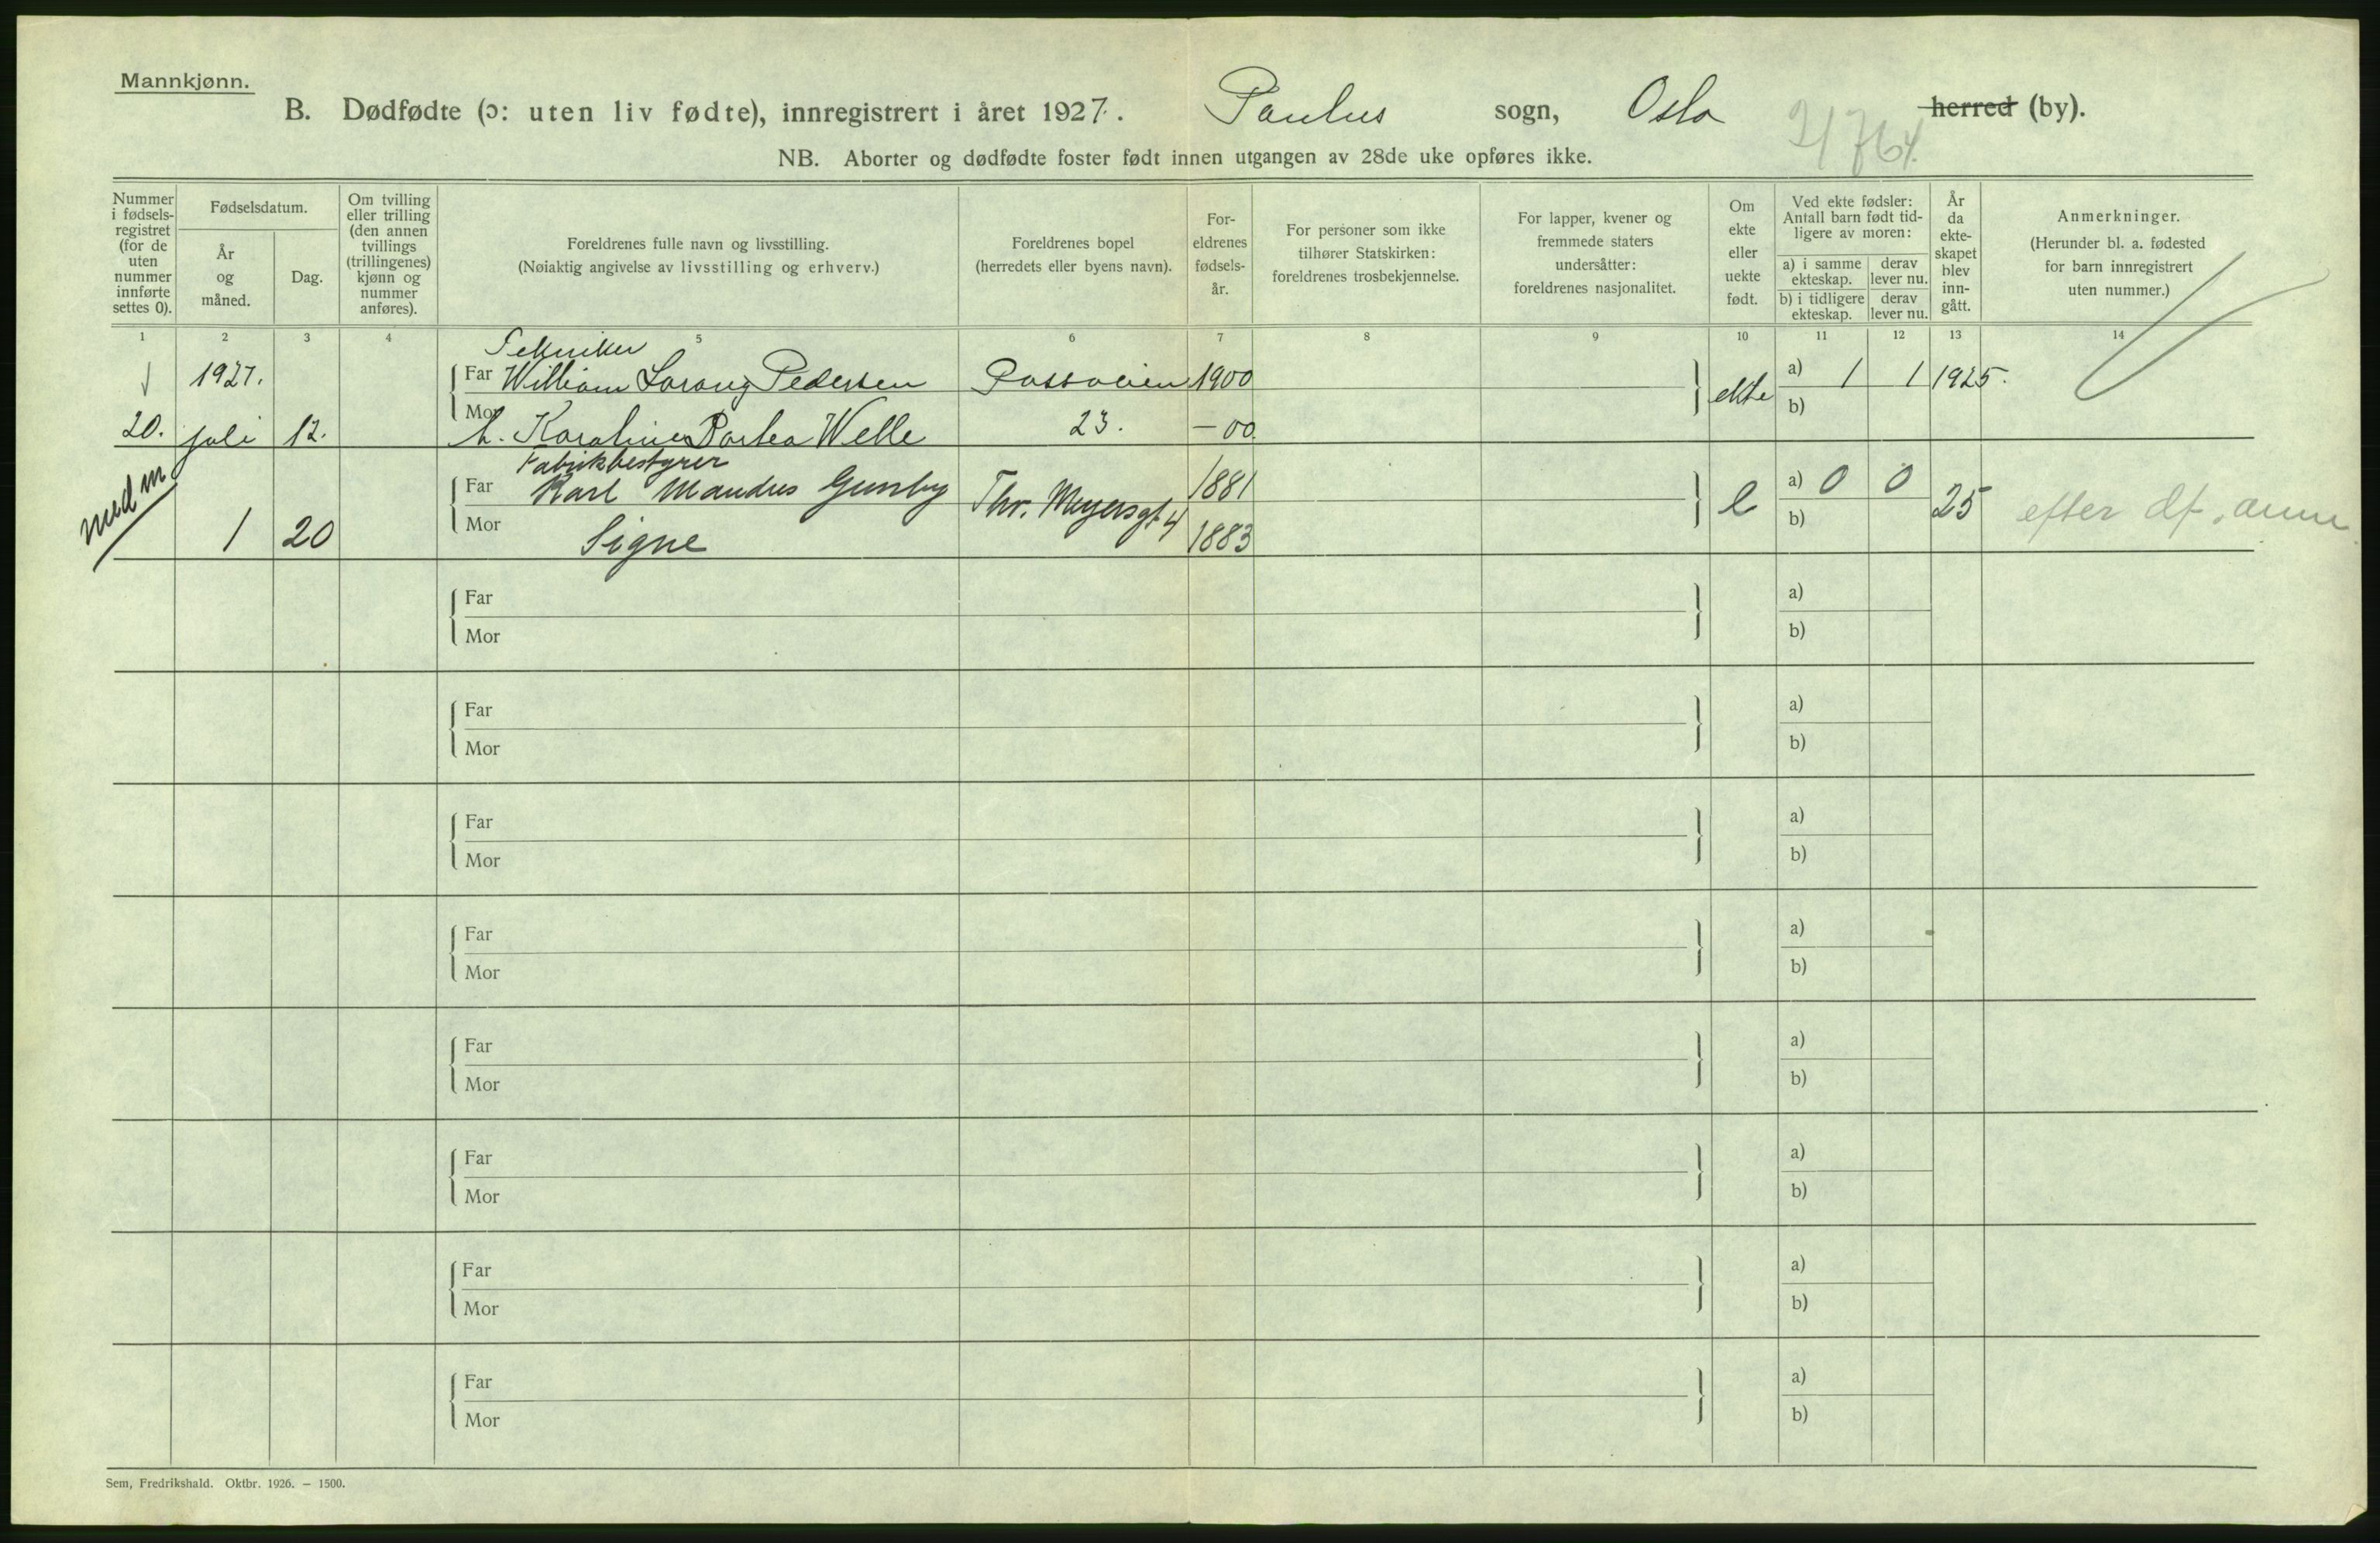 Mannkjønn.
B. Dødfødte (ɔ: uten liv fødte), innregistrert i året 1927. Paulus sogn, Oslo herred (by).
NB. Aborter og dødfødte foster født innen utgangen av 28de uke opføres ikke.
Nummer i fødsels-registret (for de uten nummer innførte settes 0).
Fødselsdatum.
År og måned.
Dag.
Om tvilling eller trilling (den annen tvillings (trillingenes) kjønn og nummer anføres).
Foreldrenes fulle navn og livsstilling.
(Nøiaktig angivelse av livsstilling og erhverv.)
Foreldrenes bopel
(herredets eller byens navn).
For-eldrenes fødsels-år.
For personer som ikke tilhører Statskirken: foreldrenes trosbekjennelse.
For lapper, kvener og fremmede staters undersåtter: foreldrenes nasjonalitet.
Om ekte eller uekte født.
Ved ekte fødsler: Antall barn født tid-ligere av moren:
a) i samme ekteskap.
derav lever nu.
b) i tidligere ekteskap.
derav lever nu.
År da ekte-skapet blev inn-gått.
Anmerkninger.
(Herunder bl. a. fødested for barn innregistrert uten nummer.)
1 2 3 4 5 6 7 8 9 10 11 12 13 14
Tekniker
1927. Far William Pedersen 1900 ekte a) 1 1 1925.
20. juli 12. Mor h. Karoline Welle 23. – 00. b)
Fabrikbestyrer
med m Far Karl Mandus Gunby Thv. Meyersgt 4 1881 e a) 0 0 25 efter df. anm
1 20 Mor Signe 1883 b)
Far a)
Mor b)
Far a)
Mor b)
Far a)
Mor b)
Far a)
Mor b)
Far a)
Mor b)
Far a)
Mor b)
Far a)
Mor b)
Far a)
Mor b)
Sem, Fredrikshald. Oktbr. 1926. – 1500.